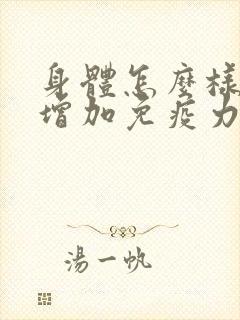 身體怎麼樣
增加免疫力
湯一帆